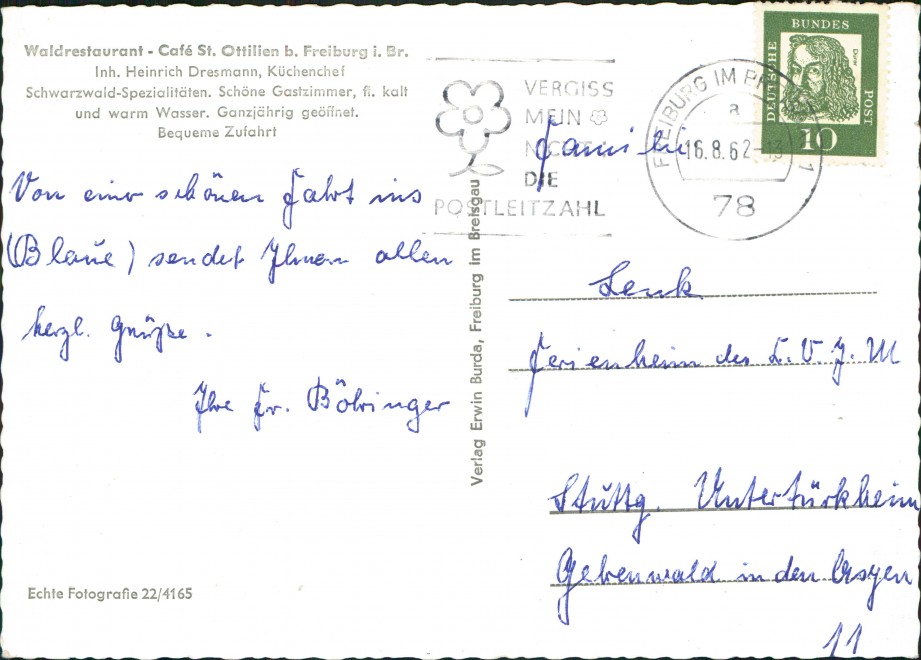 Waldrestaurant - Café St. Ottilien b. Freiburg i. Br.
Inh. Heinrich Dresmann, Küchenchef
Schwarzwald-Spezialitäten. Schöne Gastzimmer, fl. kalt
und warm Wasser. Ganzjährig geöffnet.
Bequeme Zufahrt
Von einer schönen Fahrt ins
(Blaue) sendet Ihnen allen
herzl. Grüße.
Ihre Fr. Böhringer
Echte Fotografie 22/4165
Verlag Erwin Burda, Freiburg im Breisgau
VERGISS
MEIN
NICHT
DIE
POSTLEITZAHL
FREIBURG IM 1
a
16.8.62-13
78
DEUTSCHE BUNDES POST
Dürer
10
Familie
Lenk
Ferienheim des C.V.J.M
Stuttg. Untertürkheim
Gehenwald in den
11